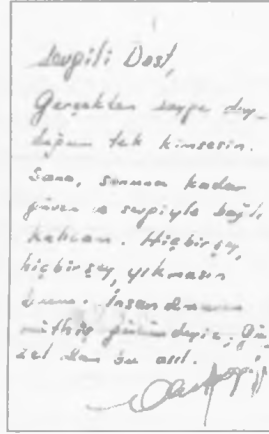 Sevgili Dost,
Gerçekten saygı duy-
duğum tek kimsesin.
Sana, sonuna kadar
güven ve sevgiyle bağlı
kalıcam. Hiçbirşey,
hiçbirşey, yıkmasın
bunu. İnsan
müthiş dayız, Gü-
zel olan bu asıl.